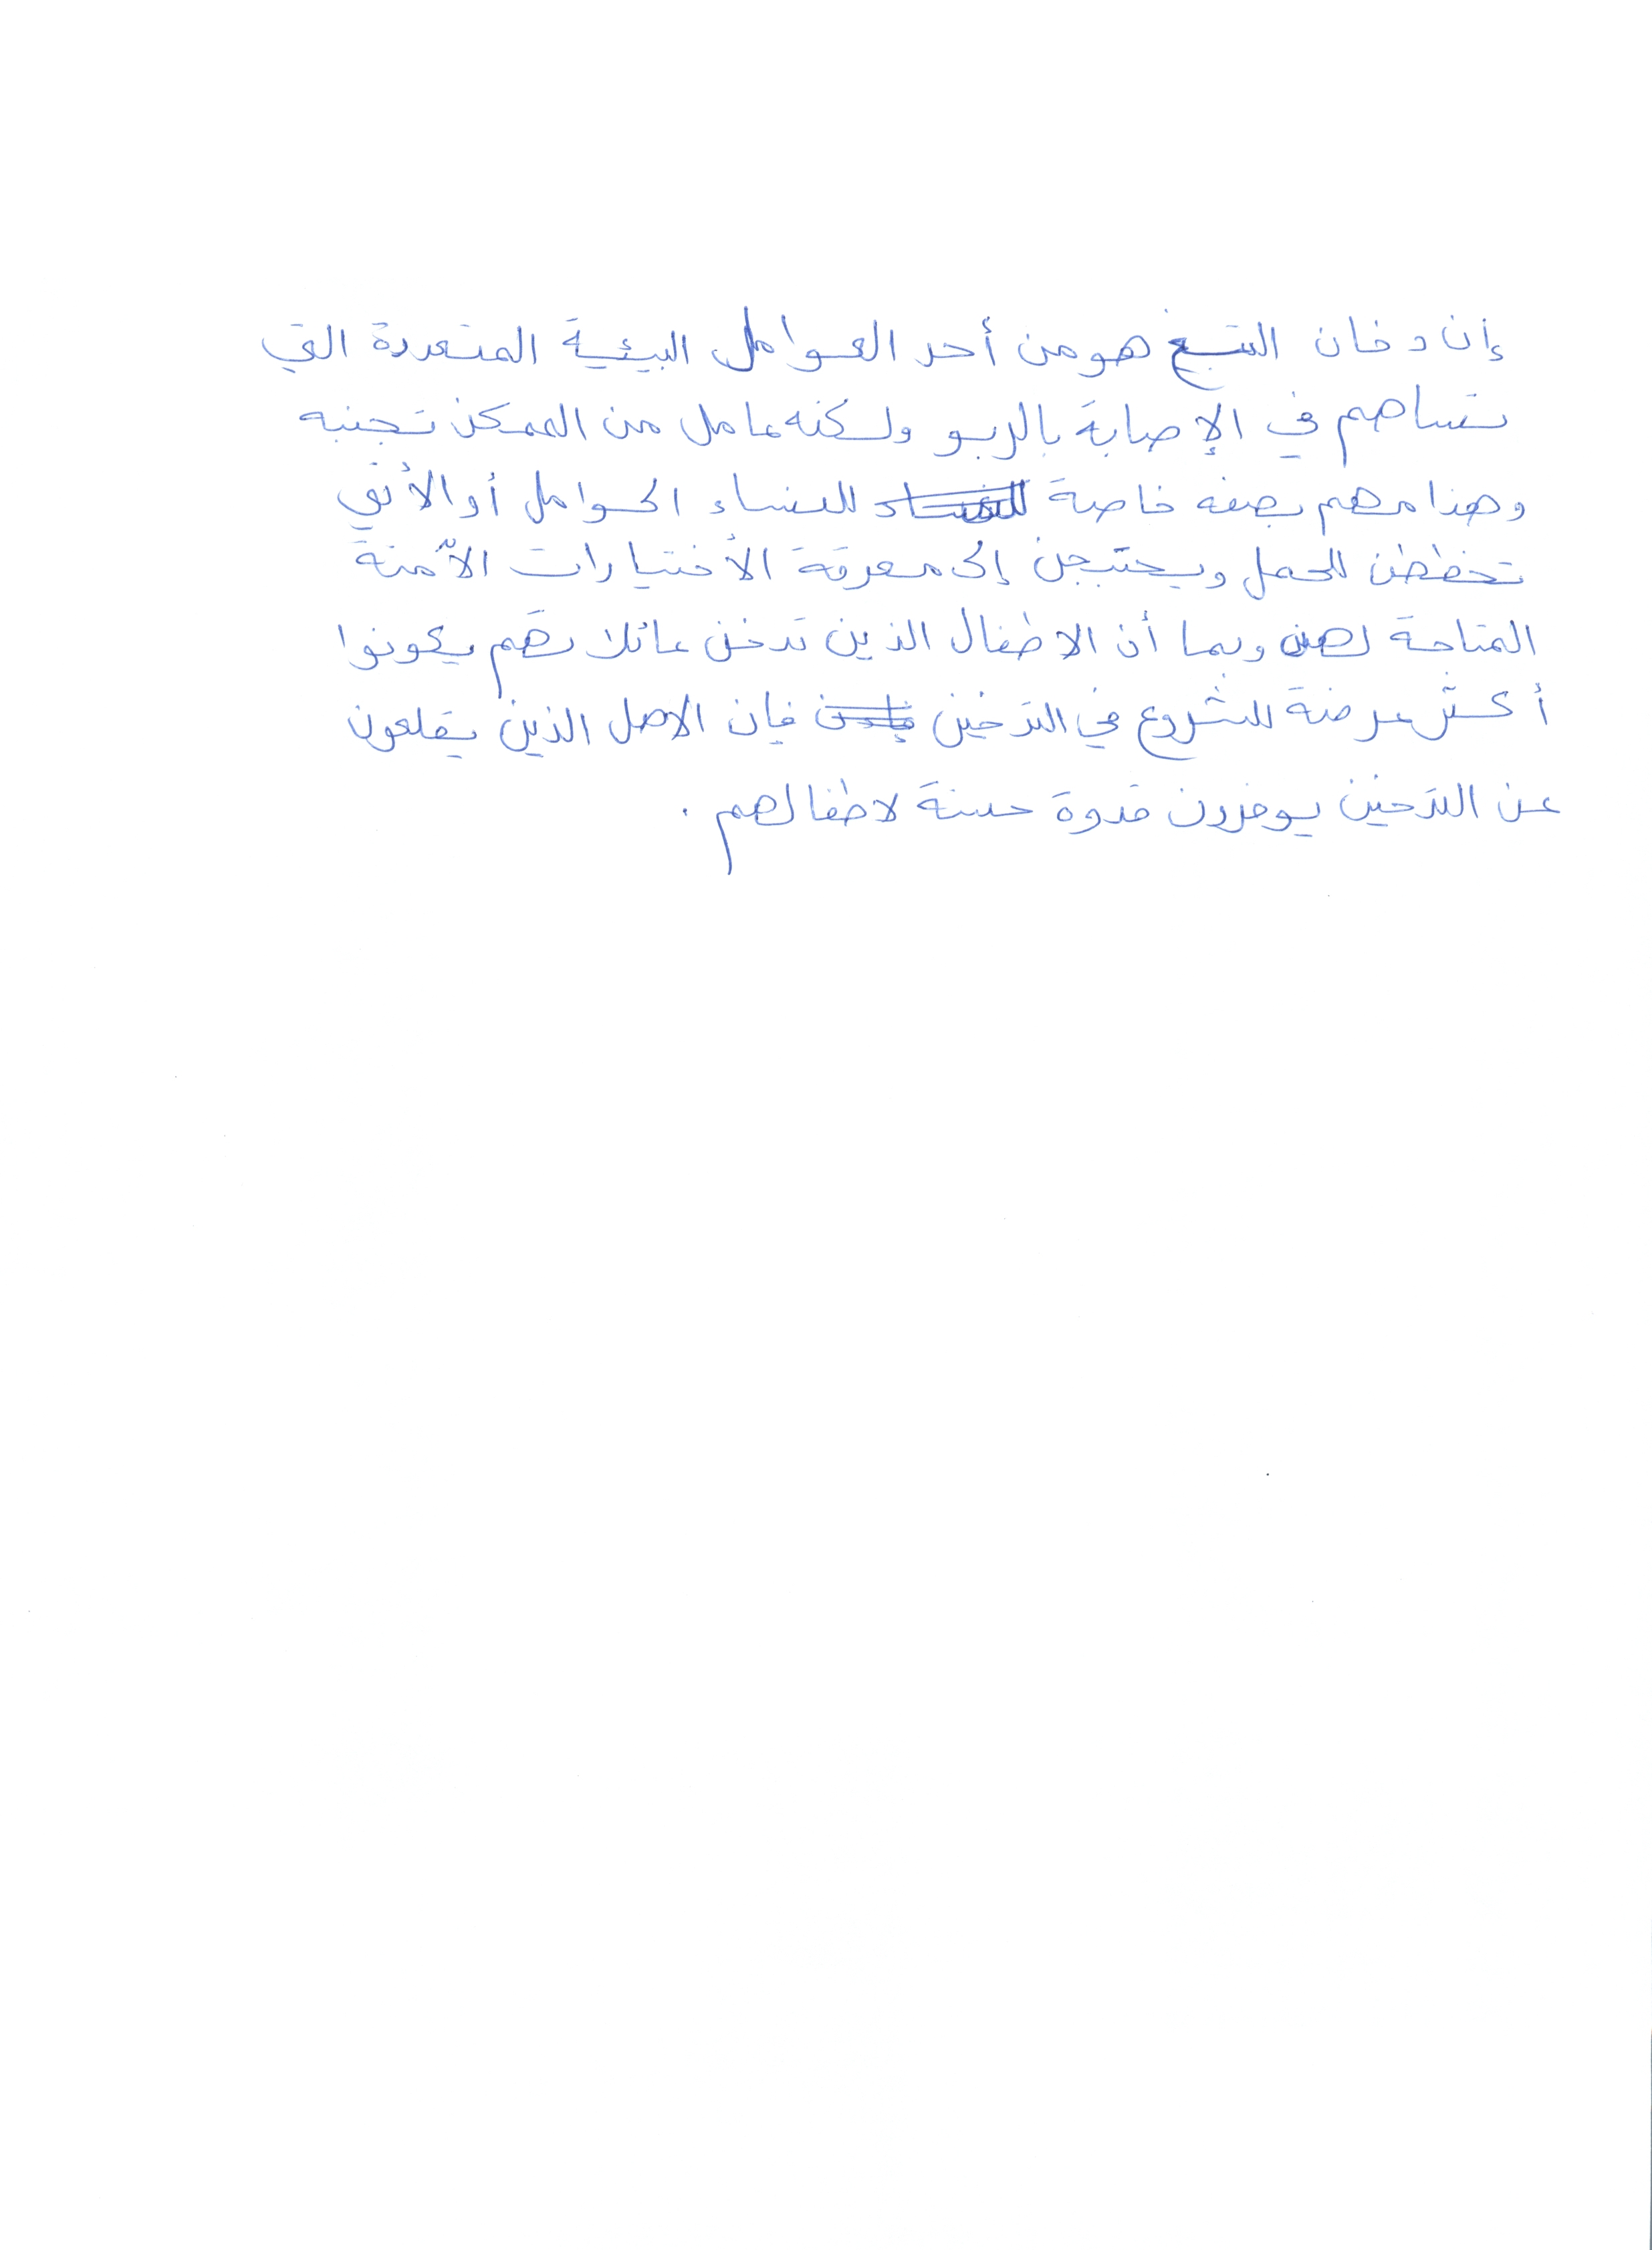 إن دخان التبغ هو من أحد العوامل البيئية المتعددة التي
تساهم في الإصابة بالربو ولكنه عامل من الممكن تجنبه
وهذا مهم بصفه خاصة للنساء الحوامل أو الأتي
تخططن للحمل ويحتجن إلى معرفة الأختيارات الآمنة
المتاحة لهن وبما أن الاطفال الذين تدخن عائلاتهم يكونوا
أكثر عرضة للشروع في التدخين فإن الاهل الذين يقلعون
عن التدخين يوفرون قدوة حسنة لاطفالهم .